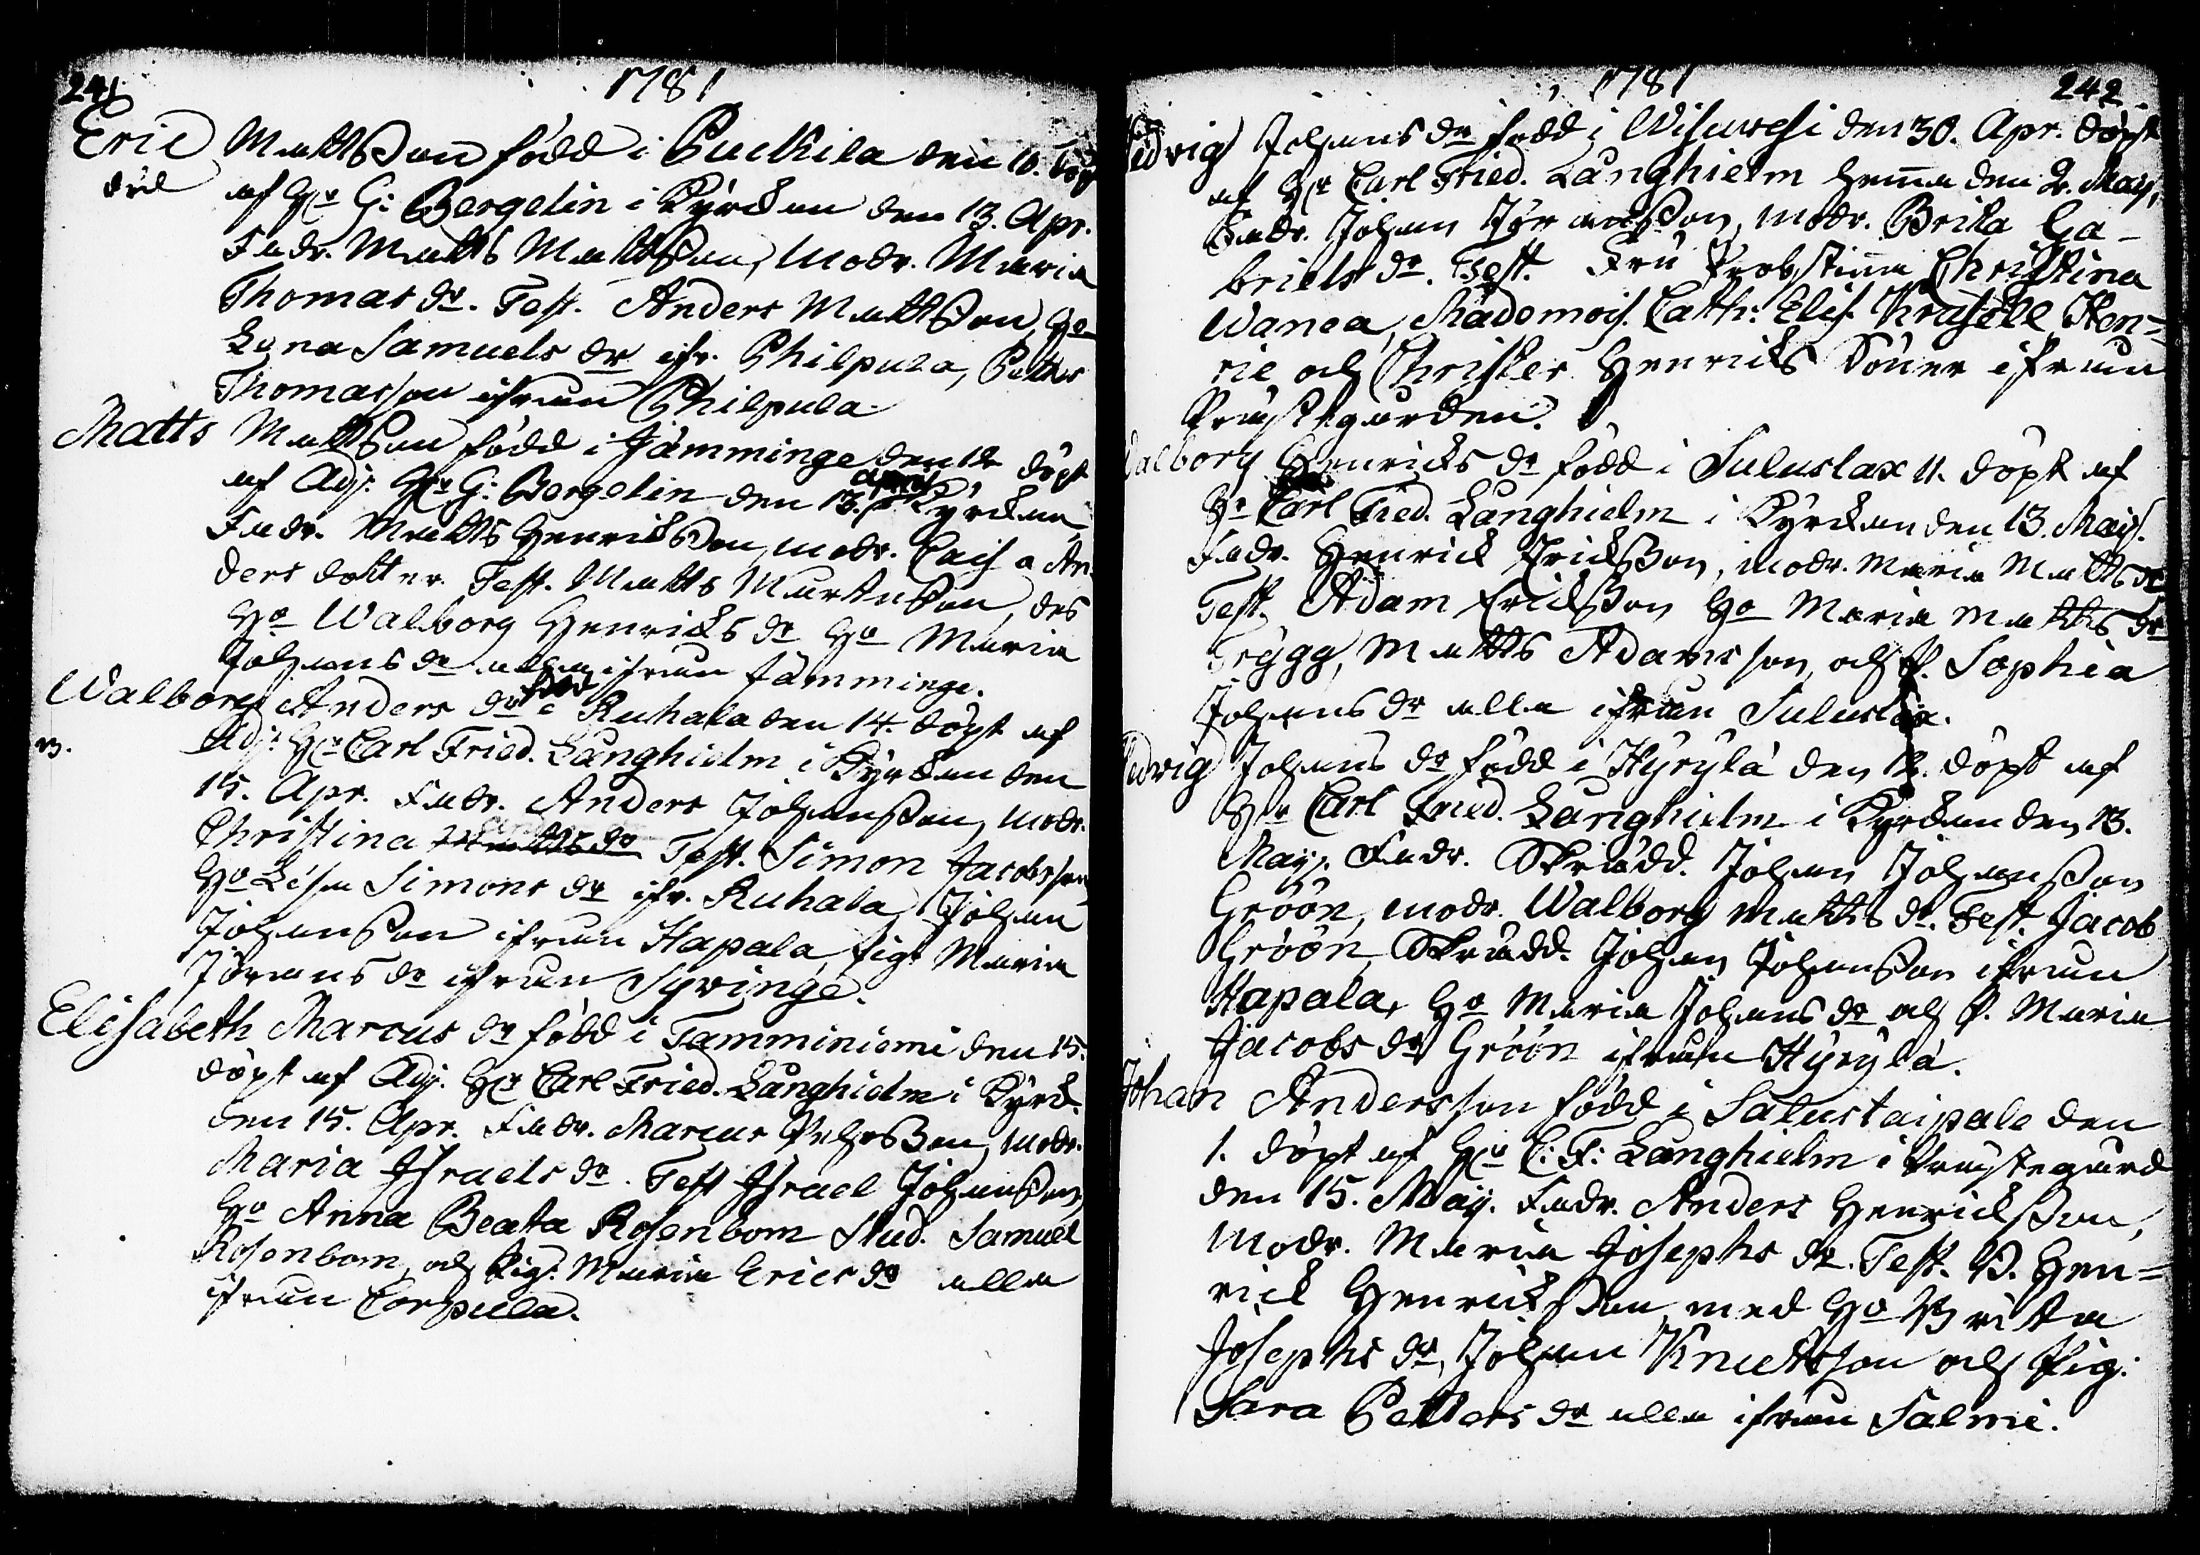 241
1781
Eric Mattsson född i Puckila den 10. döpt
död af Hr G: Bergelin i Kyrckan den 13. Apr.
Fadr. Matts Mattsson, modr. Maria
Thomas dr. Test. Anders Mattsson, Ho
Lena Samuels dr ifr. Philpula, Petter
Thomasson ifrån Philpula
Matts Mattsson född i Jämminge den 12 döpt
af Adj. Hr G: Bergelin den 13. April i Kyrckan
Fadr. Matts Henricksson, modr. Caisa An-
ders dotter. Test. Matts Martensson, des
Ho Walborg Henricks dr Ho Maria
Johans dr alla ifrån Jämminge.
Walborg Anders dr född i Ruhala den 14. döpt af
Adj. Hr Carl Fried. Långhielm i Kyrckan den
15. Apr. Fadr. Anders Johansson, modr.
Christina Matts dr Test. Simon Jacobsson
Ho Lisa Simons dr ifr. Ruhala, Johan
Johansson ifrån Hapala, pig. Maria
Jörans dr ifrån Syringe.
Elisabeth Marcus dr född i Tamminiemi den 15.
döpt af Adj. Hr Carl Fried. Långhielm i Kyrck.
den 15. Apr. Fadr. Marcus Pehrsson, modr.
Maria Israels dr. Test Israel Johansson
Ho Anna Beata Rosenbom Stud. Samuel
Rosenbom, och Pig. Maria Erics dr alla
ifrån Corpula.
1781
242
Hedvig Johans dr född i Wisuvesi den 30. Apr. döpt
af Hr Carl Fried. Långhielm hema den 2. May,
Fadr. Johan Jöransson, modr. Brita Ga-
briels dr. Test. Fru Probstina Christina
Wanea, Mademois. Cath: Elis. Krasell Hen-
ric och Christer Henricks Söner ifrån
Prästegården.
Walborg Henricks dr född i Suluslax 11. döpt af
Hr Carl Fried. Långhielm i Kyrckan den 13. May.
Fadr. Henrick Ericksson, modr. Maria Matts dr
Test. Adam Ericksson Ho Maria Matts dr
Trygg, Matts Adamsson, och P. Sophia
Johans dr alla ifrån Suluslax.
Hedvig Johans dr född i Hyrylä den 12. döpt af
Hr Carl Fried. Långhielm i Kyrckan den 13.
May. Fadr. Skrädd. Johan Johansson
Gröön, modr. Walborg Matts dr. Test. Jacob
Gröön, Skrädd. Johan Johansson ifrån
Hapala, Ho Maria Johans dr och P. Maria
Jacobs dr Gröön ifrån Hyrylä.
Johan Andersson född i Salustaipale den
1. döpt af Hr C: F: Långhielm i Prästegård
den 15. May. Fadr. Anders Henricksson,
modr. Maria Josephs dr. Test. B. Hen-
rick Henricksson med Ho Brita
Josephs dr, Johan Knutsson och Pig:
Sara Petters dr alla ifrån Salmi.